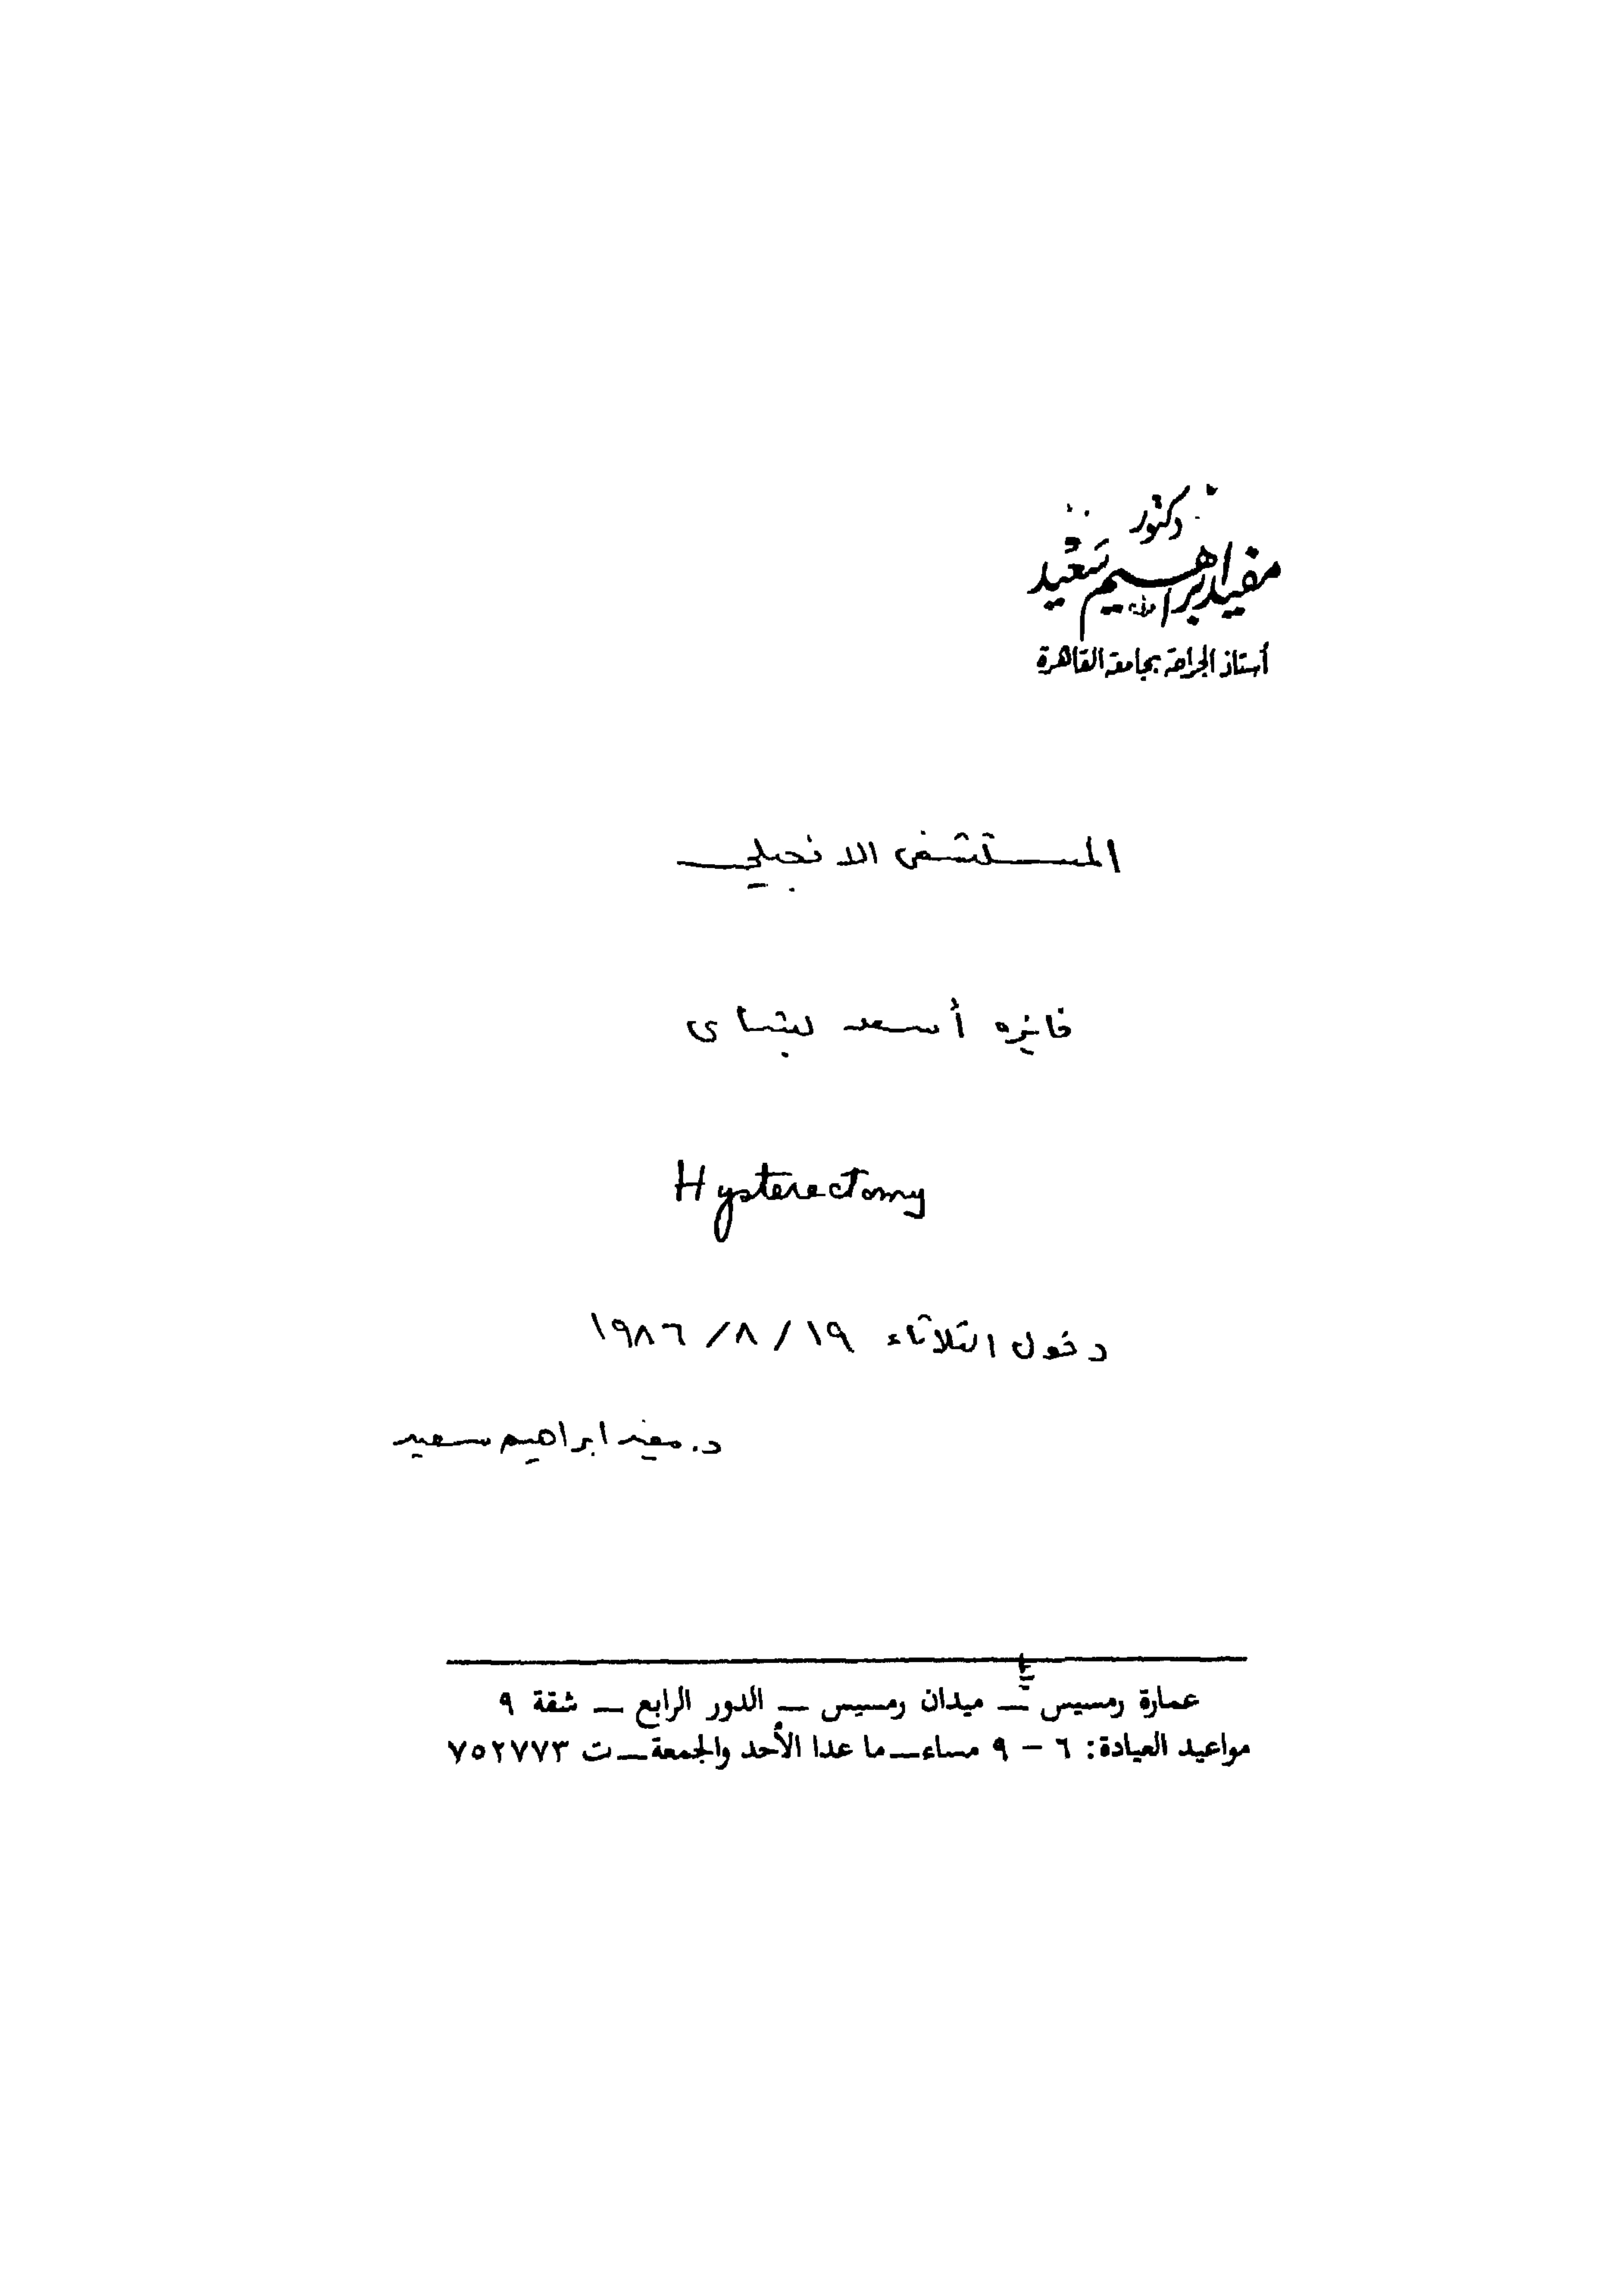 دكتور
مفيد إبراهيم سعيد
أستاذ الجراحة بجامعة القاهرة
المستشفى الانجيلي
فايزه أسعد بشاى
Hysterectomy
دخول الثلاثاء ١٩ / ٨ / ١٩٨٦
د. مفيد ابراهيم سعيد
عمارة رمسيس ـ ميدان رمسيس ـ الدور الرابع ـ شقة ٩
مواعيد العيادة: ٦ - ٩ مساء ـ ما عدا الأحد والجمعة ـ ت ٧٥٢٧٧٣